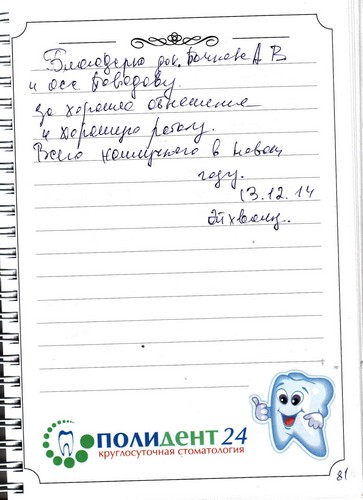 Благодарю док. Бочкова А В
и асс
за хорошее отношение
и хорошую работу.
Всего наилучшего в новом
году.
13.12.14
ПОЛИДЕНТ 24
круглосуточная стоматология
81